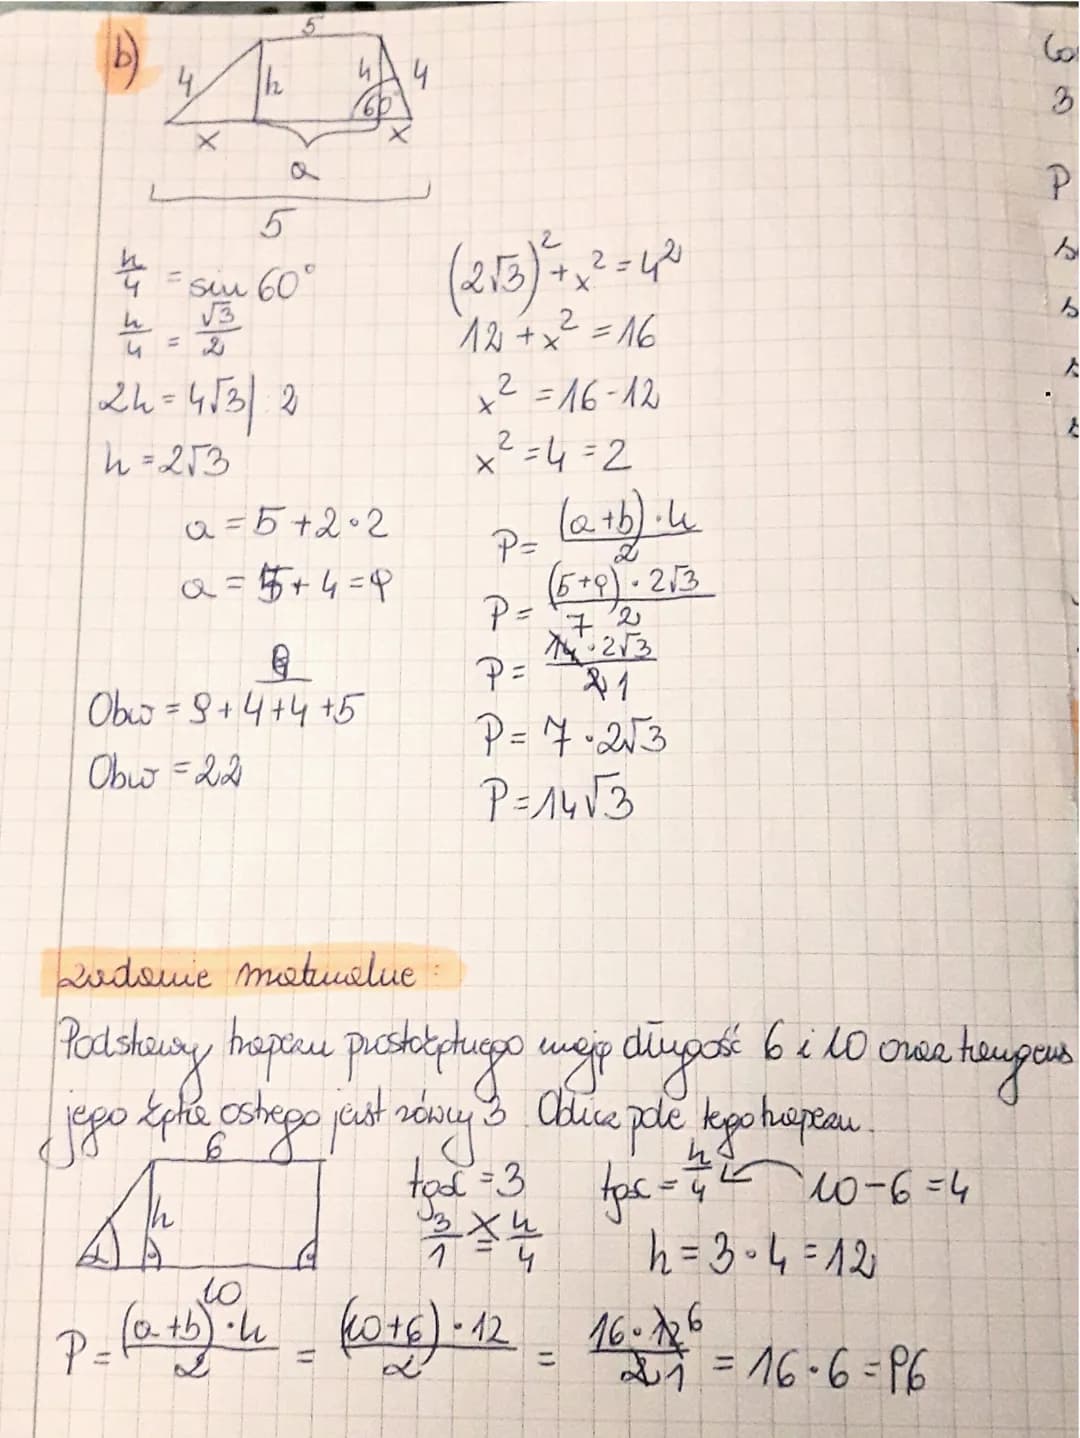 b)
5
4 h 4 4
60°
x x
a
5
h/4 = sin 60°
h/4 = √3/2
2h = 4√3 | : 2
h = 2√3
(2√3)² + x² = 4²
12 + x² = 16
x² = 16 - 12
x² = 4 = 2
a = 5 + 2 · 2
a = 5 + 4 = 9
Obw = 9 + 4 + 4 + 5
Obw = 22
P = (a+b) · h / 2
P = (5+9) · 2√3 / 2
P = 14 · 2√3 / 2 7 1
P = 7 · 2√3
P = 14√3
Zadanie maturalne:
Podstawy trapezu prostokątnego mają długość 6 i 10 oraz tangens
jego kąta ostrego jest równy 3. Oblicz pole tego trapezu.
6
h
α
10
tgα = 3
3/1 = h/4
tgα = h/4 10 - 6 = 4
h = 3 · 4 = 12
P = (a+b) · h / 2 = (10+6) · 12 / 2 = 16 · 12 6 / 2 1 = 16 · 6 = 96
3
P
s
s
s
s